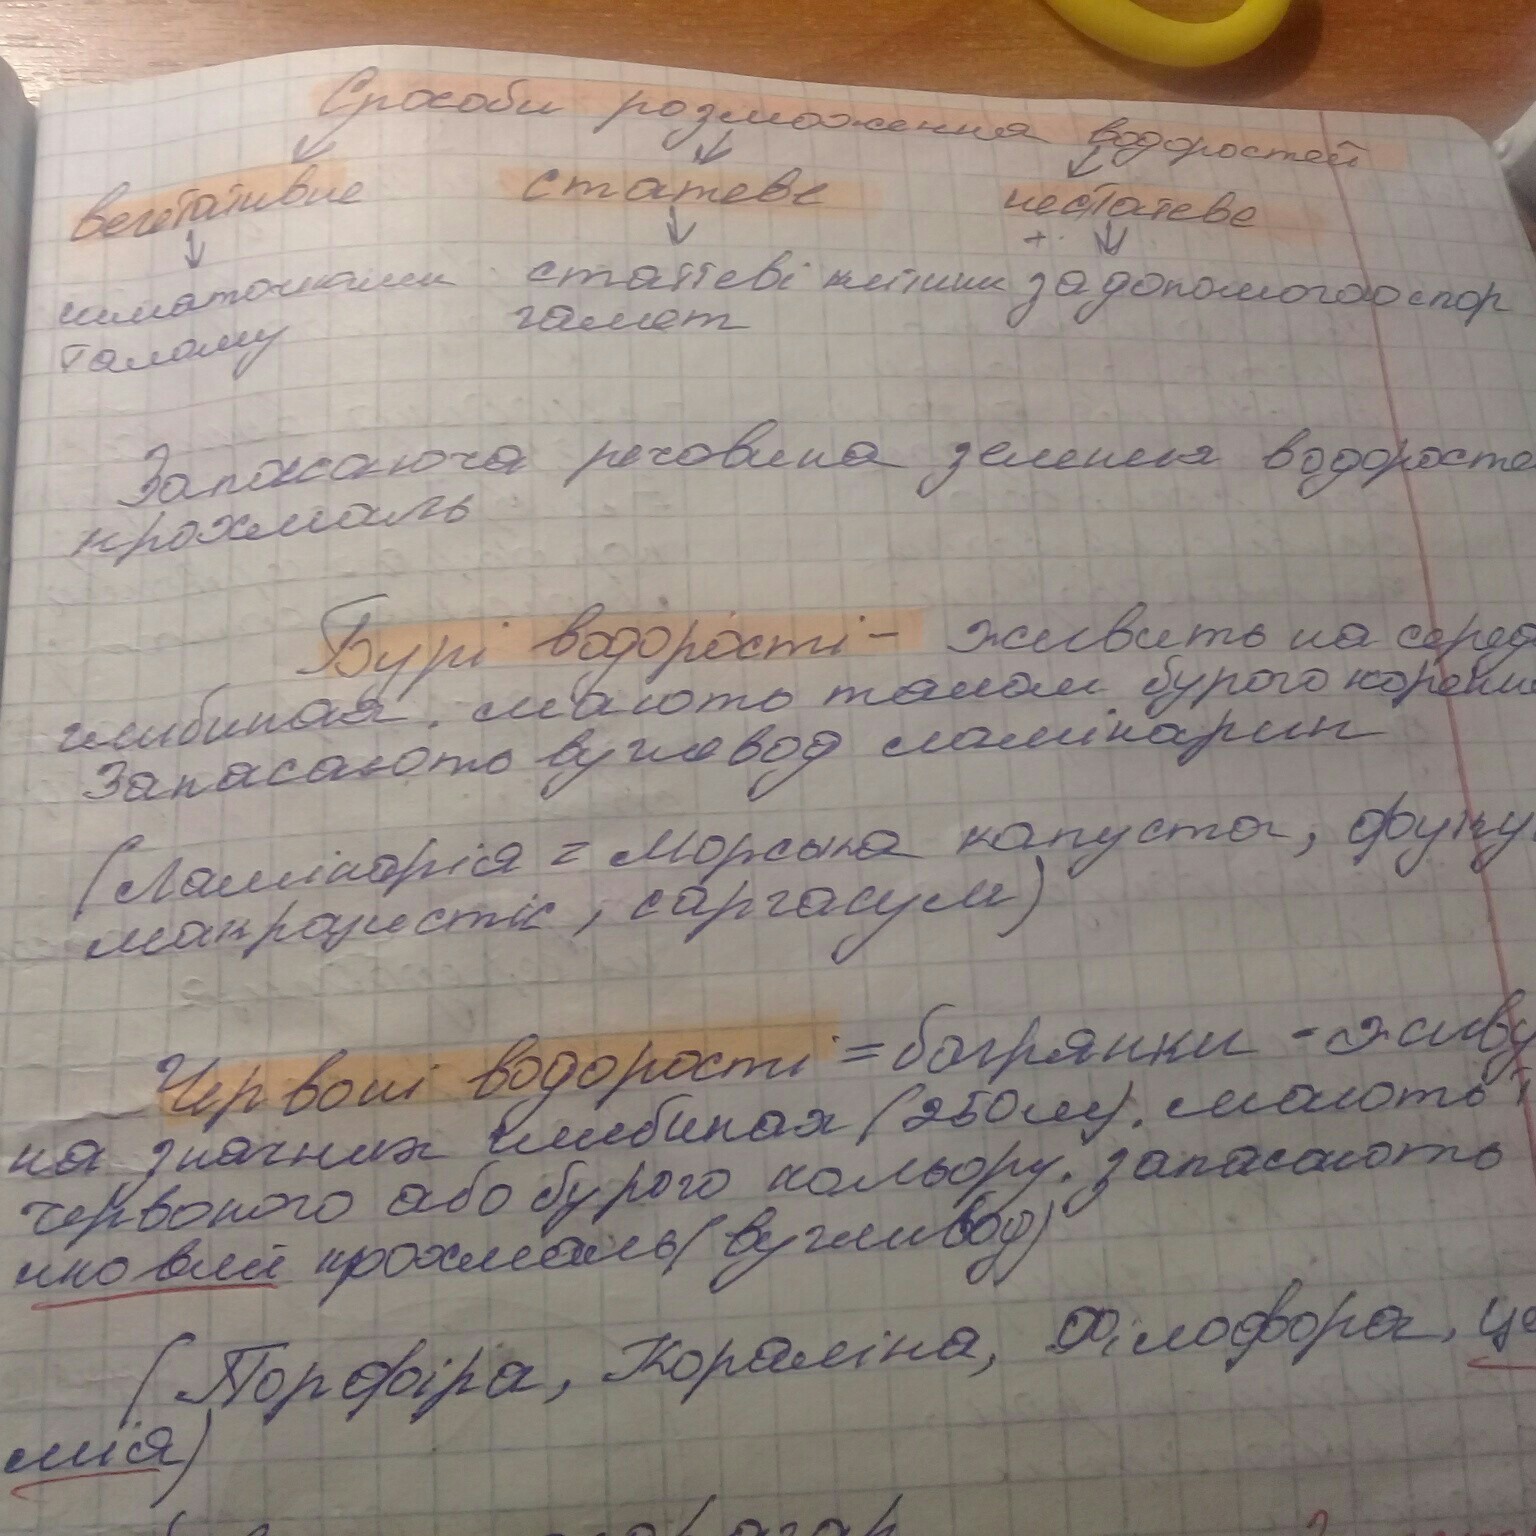 Способи розмноження водоростей
вегетативне статеве нестатеве
шматочками статеві клітини за допомогою спор
талому гамет
Запасаюча речовина зелених водоросте
крохмаль
Бурі водорості - живить на серед
глибинах. мають талом бурого коренын
Запасають вуглевод ламінарин
(Ламінарія = Морська капуста, фуку
макроцистіс, саргасум)
Червоні водорості = багрянки - живу
на значних глибинах (250м). мають т
червоного або бурого кольору. запасають
крохмаль (вугливод)
(Порфіра, Кораліна, Філофора, це
мія)